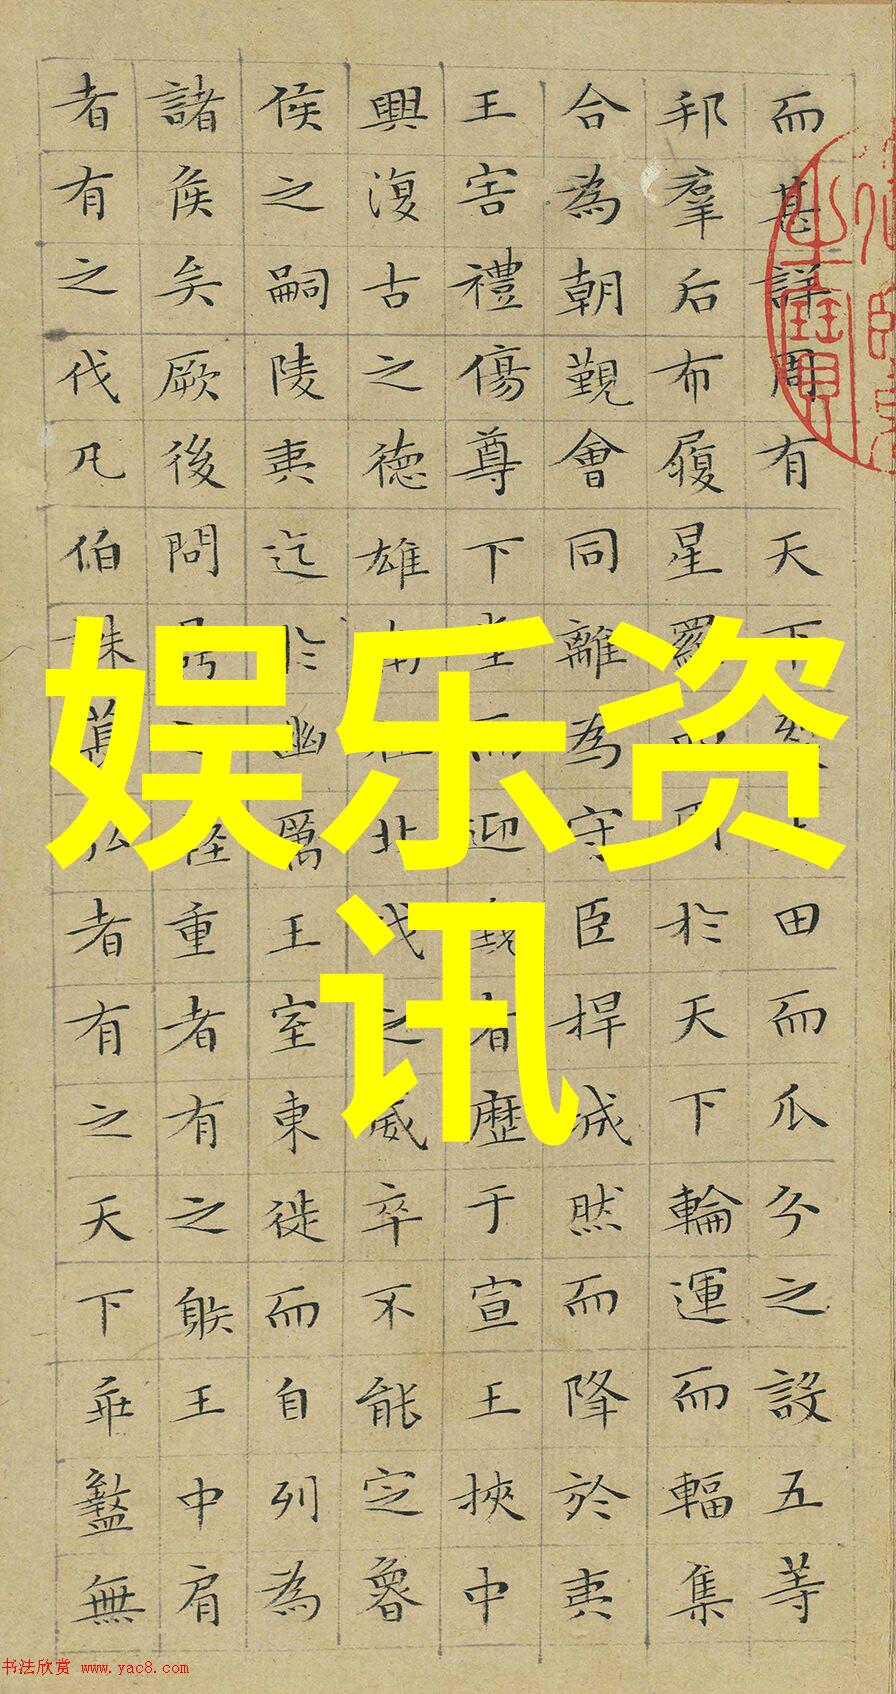 而甚詳周有天下裂土田而瓜分之設五等
邦羣后布履星羅四周於天下輪運而輻集
合為朝覲會同離為守臣捍城然而降於夷
王害禮傷尊下堂而迎覲者歷于宣王挾中
興復古之德雄南征北伐之威卒不能定魯
侯之嗣陵夷迄於幽厲王室東徙而自列為
諸侯矣厥後問鼎之輕重者有之躲王中肩
者有之伐凡伯誅萇弘者有之天下乖盭無
娱乐资
讯
书法欣赏 www.yac8.com